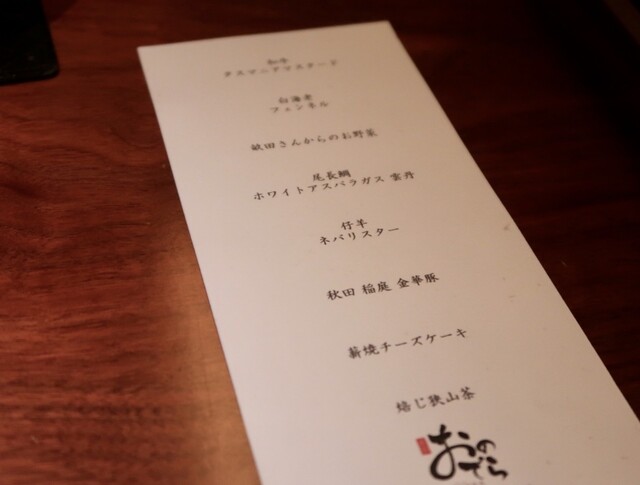 和牛
タスマニアマスタード
白海老
フェンネル
鍬田さんからのお野菜
尾長鯛
ホワイトアスパラガス 雲丹
仔羊
ネバリスター
秋田 稲庭 金華豚
薪焼チーズケーキ
焙じ狭山茶
おのでら